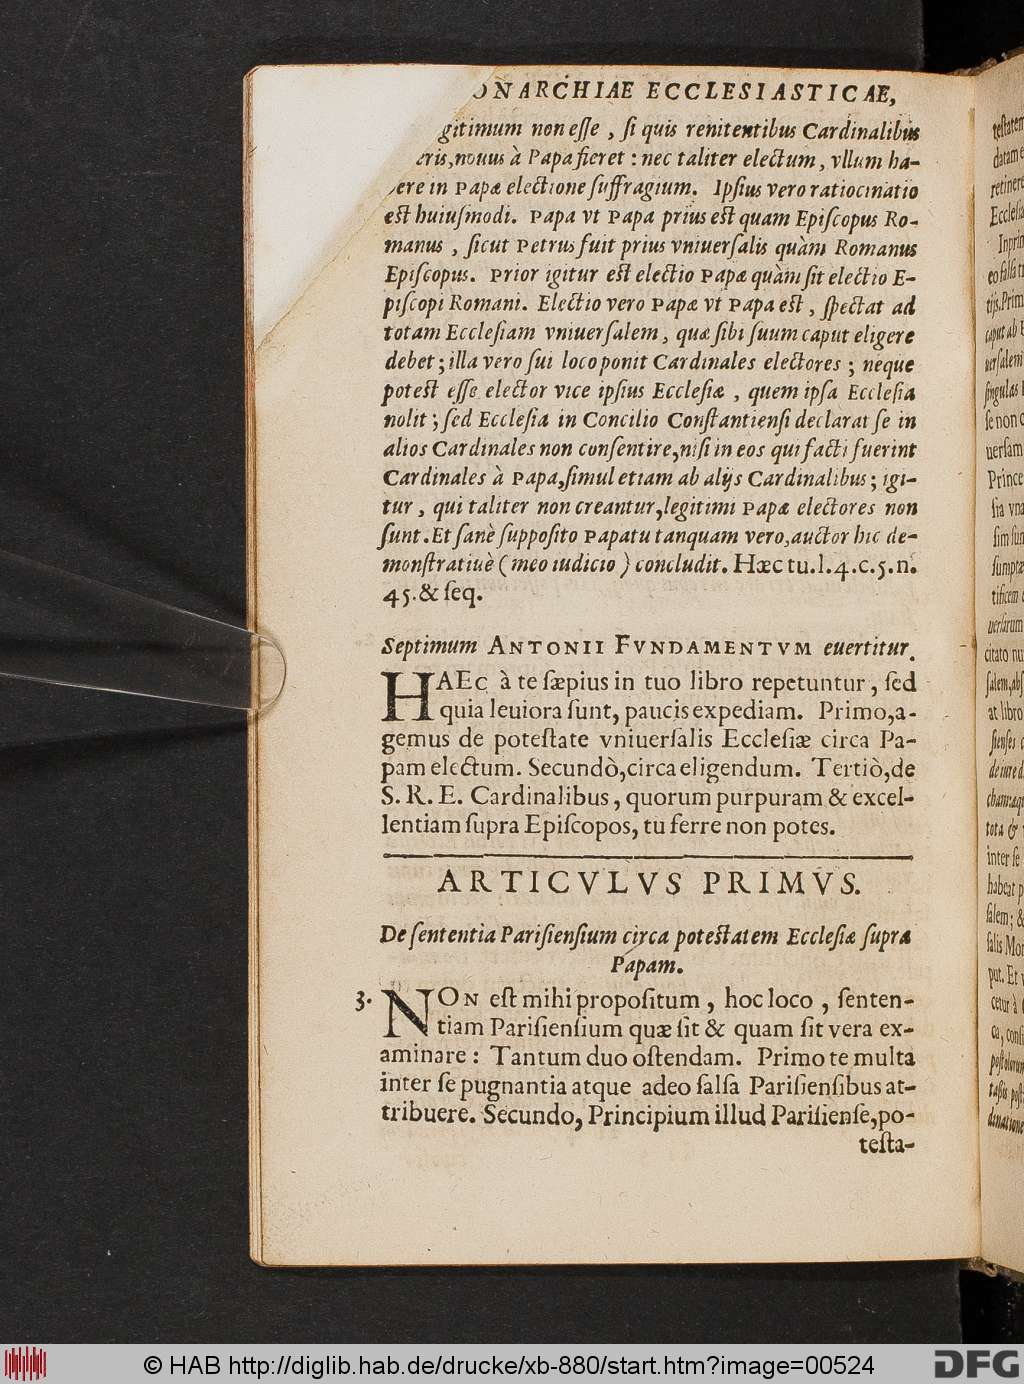 ONARCHIAE ECCLESIASTICAE,
gitimum non eſſe, ſi quis renitentibus Cardinalibus
eris, nouus à Papa fieret: nec taliter electum, vllum ha-
ere in Papæ electione ſuffragium. Ipſius vero ratiocinatio
est huiuſmodi. Papa vt Papa prius est quam Epiſcopus Ro-
manus, ſicut Petrus fuit prius vniuerſalis quàm Romanus
Epiſcopus. Prior igitur est electio Papæ quàm ſit electio E-
piſcopi Romani. Electio vero Papæ vt Papa est, ſpectat ad
totam Eccleſiam vniuerſalem, quæ ſibi ſuum caput eligere
debet; illa vero ſui loco ponit Cardinales electores; neque
potest eſſe elector vice ipſius Eccleſiæ, quem ipſa Eccleſia
nolit; ſed Eccleſia in Concilio Constantienſi declarat ſe in
alios Cardinales non conſentire, niſi in eos qui facti fuerint
Cardinales à Papa, ſimul etiam ab alijs Cardinalibus; igi-
tur, qui taliter non creantur, legitimi Papæ electores non
ſunt. Et ſanè ſuppoſito Papatu tanquam vero, auctor hic de-
monſtratiuè (meo iudicio) concludit. Hæc tu. l. 4. c. 5. n.
45. & ſeq.
Septimum ANTONII FVNDAMENTVM euertitur.
HAEc à te ſæpius in tuo libro repetuntur, ſed
quia leuiora ſunt, paucis expediam. Primo, a-
gemus de poteſtate vniuerſalis Eccleſiæ circa Pa-
pam electum. Secundò, circa eligendum. Tertiò, de
S. R. E. Cardinalibus, quorum purpuram & excel-
lentiam ſupra Epiſcopos, tu ferre non potes.
ARTICVLVS PRIMVS.
De ſententia Pariſienſium circa potestatem Eccleſiæ ſupra
Papam.
3. NON eſt mihi propoſitum, hoc loco, ſenten-
tiam Pariſienſium quæ ſit & quam ſit vera ex-
aminare: Tantum duo oſtendam. Primo te multa
inter ſe pugnantia atque adeo falſa Pariſienſibus at-
tribuere. Secundo, Principium illud Pariſienſe, po-
teſta-
teſtatem
datam e
retinere
Eccleſia
Inprim
eo falſa
tijs. Prim
caput ab
uerſalem
ſingulas
ſe non
uerſam
Prince
ſia vna
ſim ſun
ſumptæ
tificem
uerſarum
citato nu
ſalem, abſ
at libro
ſienſes
de iure d
tota &
inter ſe
habeat p
ſalem; &
ſalis Mon
put. Et
cetur à
ca, conſi
poſtolorum
tatis poſt
dinatione
© HAB http://diglib.hab.de/drucke/xb-880/start.htm?image=00524
DFG